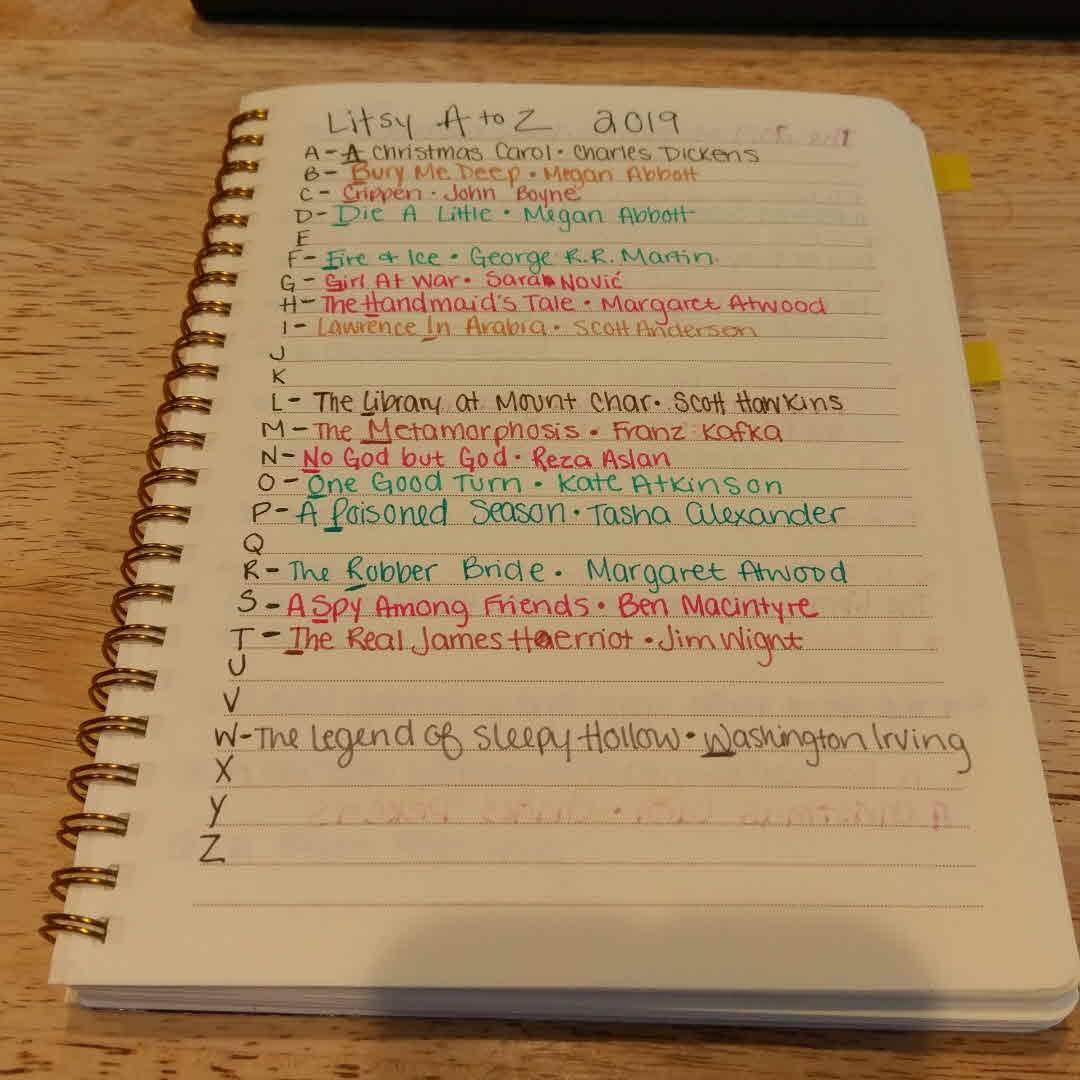 Litsy A to Z 2019
A - A Christmas Carol · Charles Dickens
B - Bury Me Deep · Megan Abbott
C - Crippen · John Boyne
D - Die A Little · Megan Abbott
E
F - Fire & Ice · George R.R. Martin
G - Girl At War · Sara Nović
H - The Handmaid's Tale · Margaret Atwood
I - Lawrence In Arabia · Scott Anderson
J
K
L - The Library at Mount Char · Scott Hawkins
M - The Metamorphosis · Franz Kafka
N - No God but God · Reza Aslan
O - One Good Turn · Kate Atkinson
P - A Poisoned Season · Tasha Alexander
Q
R - The Robber Bride · Margaret Atwood
S - A Spy Among Friends · Ben Macintyre
T - The Real James Haerriot · Jim Wight
U
V
W - The Legend of Sleepy Hollow · Washington Irving
X
Y
Z